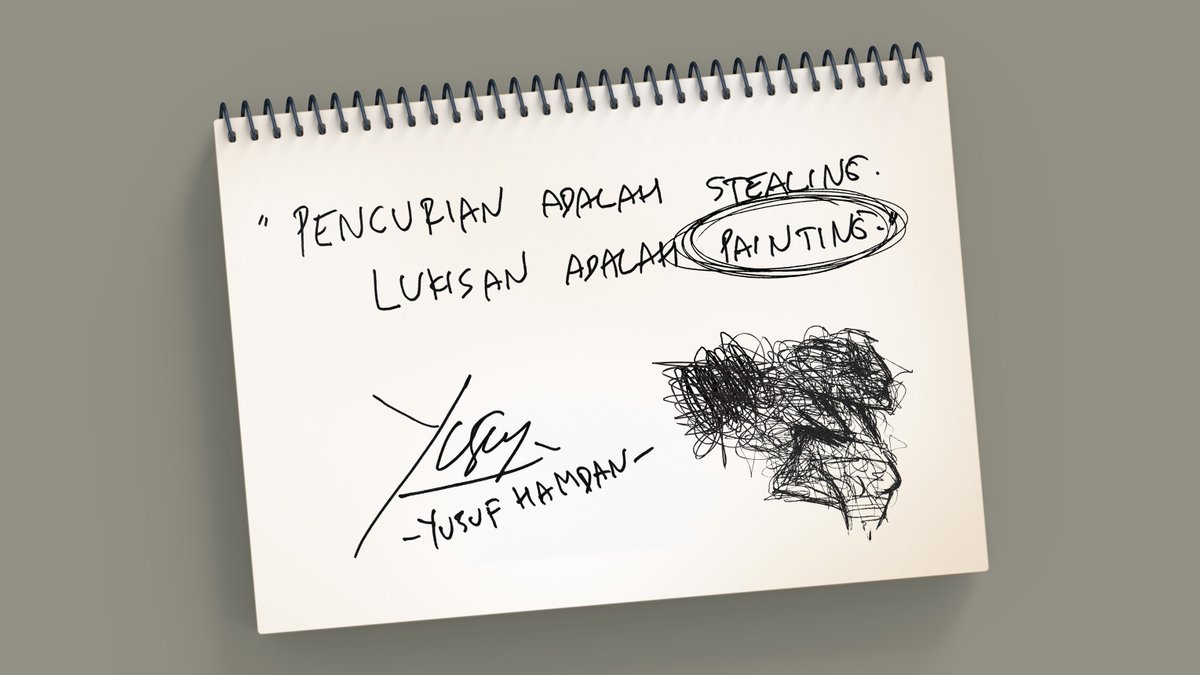 " PENCURIAN ADALAH STEALING.
LUKISAN ADALAH PAINTING."
-YUSUF HAMDAN-